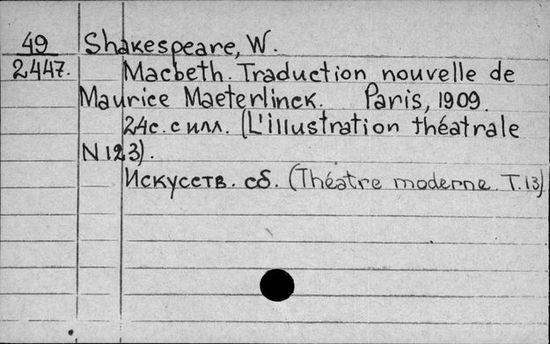 49 Shakespeare, W.
2447. Macbeth. Traduction nouvelle de
Maurice Maeterlinck. Paris, 1909.
24с. с илл. (L'illustration théatrale
N 123).
Искусств. сб. (Théatre moderne. T.13)